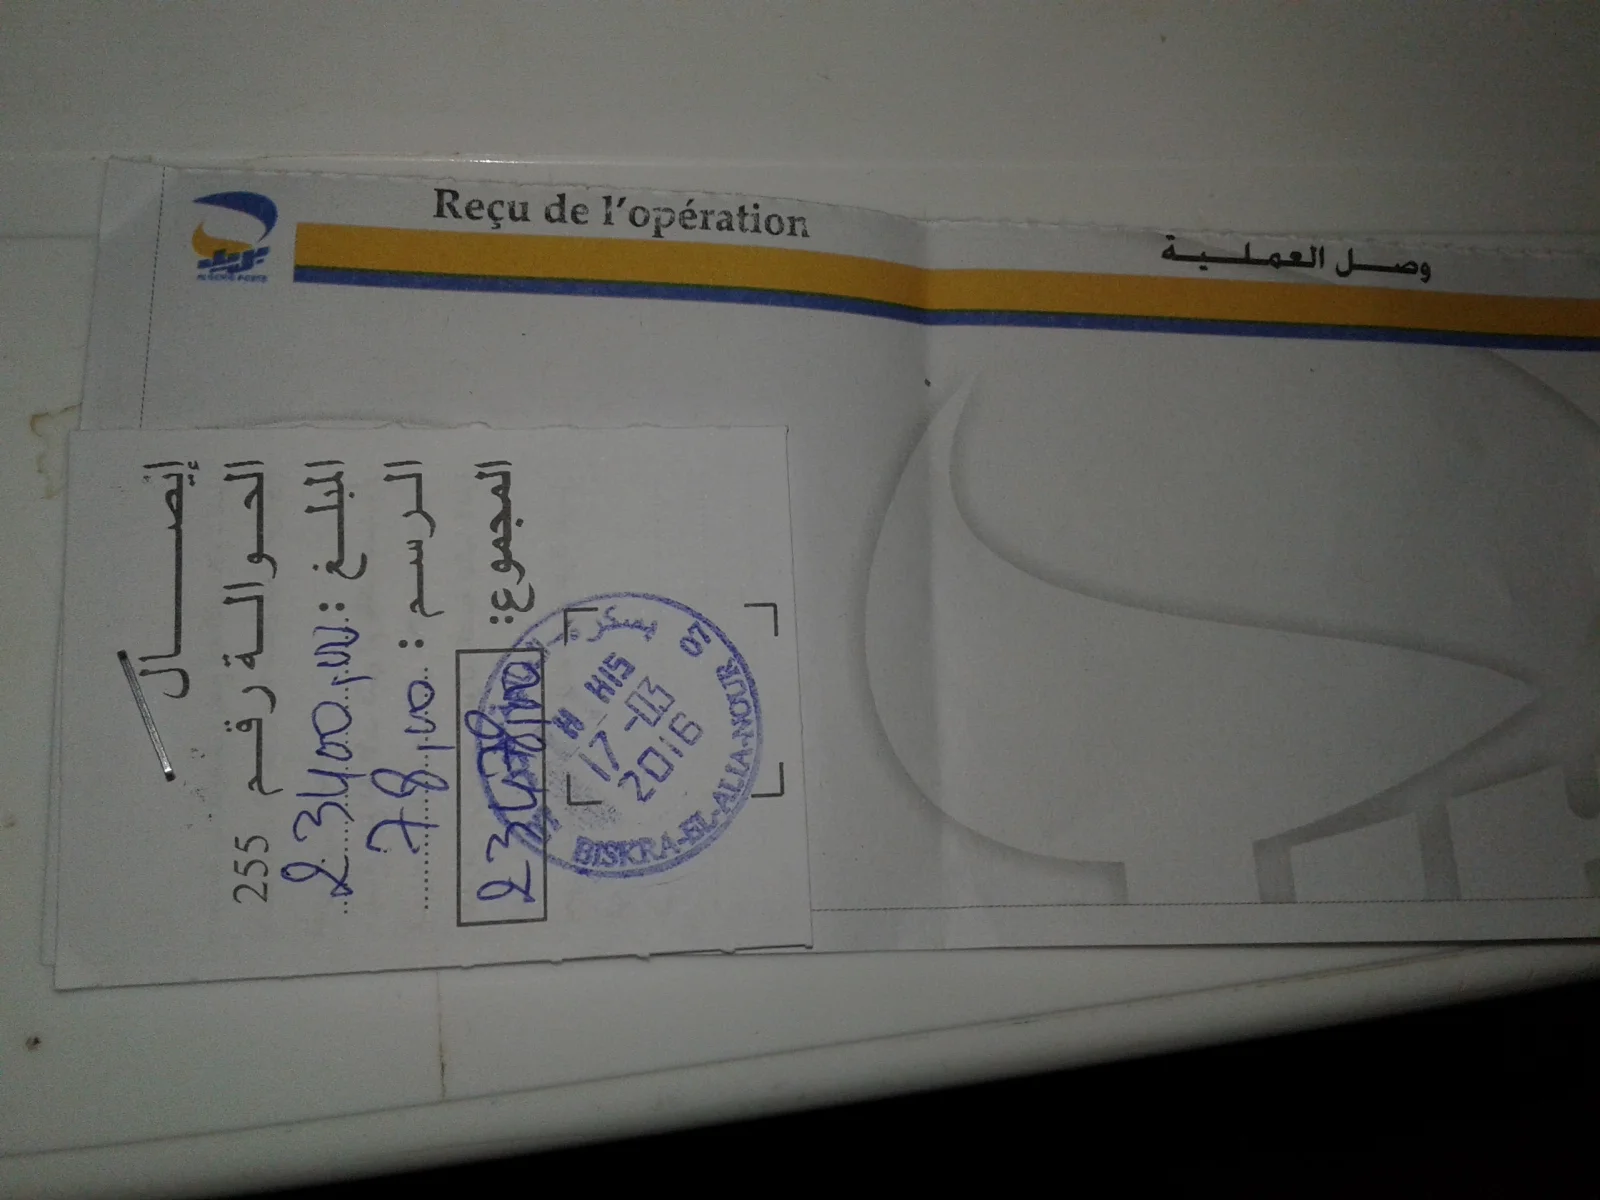 Reçu de l'opération
وصل العملية
ALGERIE POSTE
إيصال
الحوالة رقم 255
المبلغ : 23400,00
الرسم : 78,00
المجموع:
بسكرة
07
H HIS
17-03
2016
BISKRA-EL-ALIA-NOUR